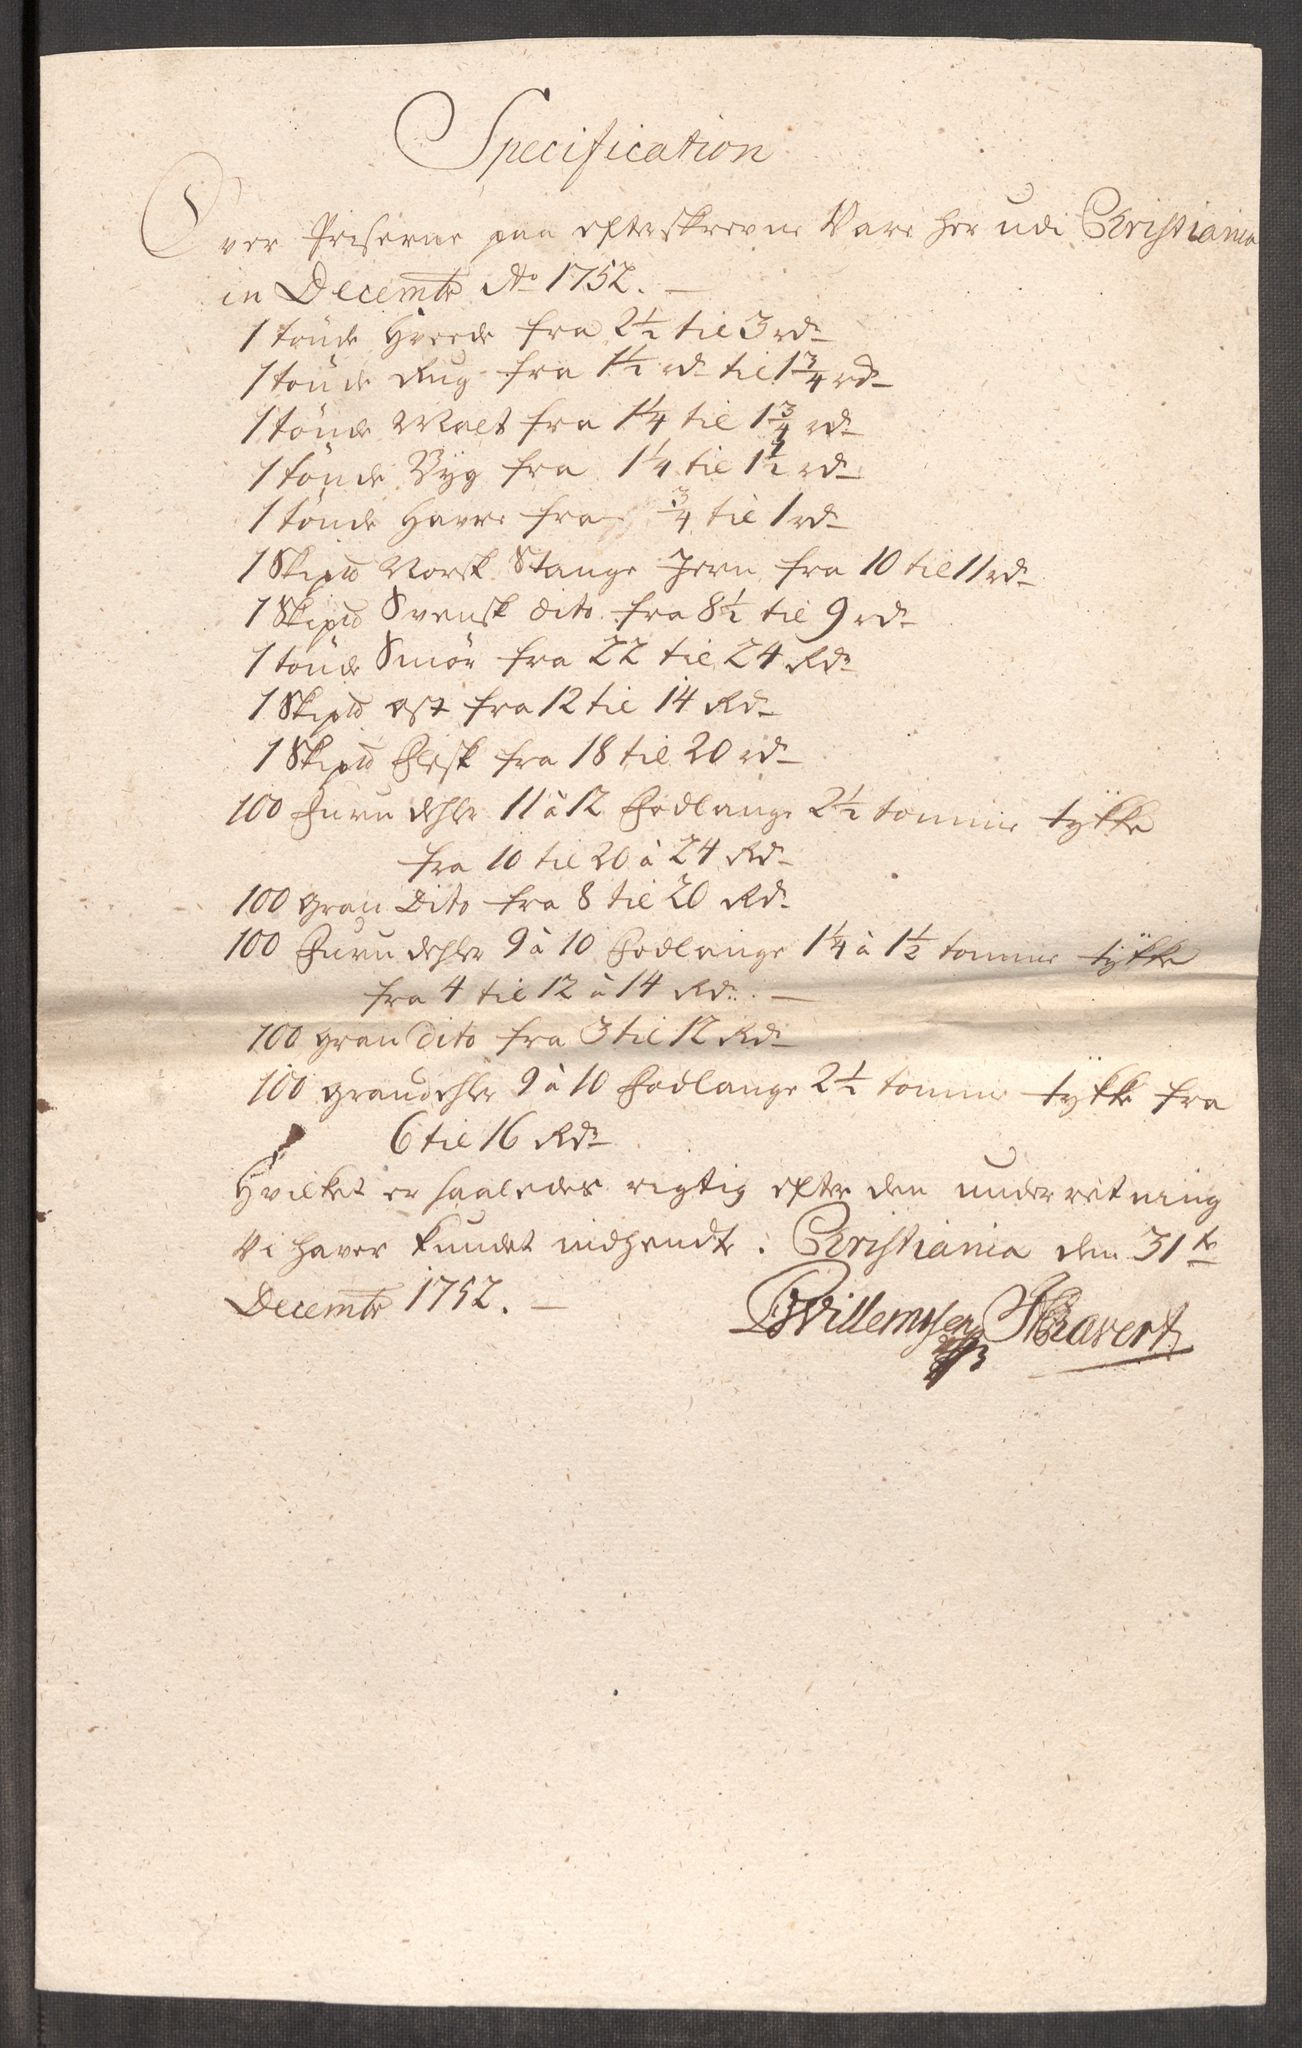 Specification
Over Priserne paa efterskrevne Vare her udi Christiania
in Decembr Ao 1752. —
1 tönde Hvede fra 2½ til 3 rdr
1 tönde Rug fra 1½ rdr til 1¾ rdr
1 tönde Malt fra 1¼ til 1¾ rdr
1 tönde Byg fra 1¼ til 1½ rdr
1 tönde Havre fra ¾ til 1 rdr
1 Skipd Norsk Stange Jern fra 10 til 11 rdr
1 Skipd Svensk dito fra 8½ til 9 rdr
1 tönde Smör fra 22 til 24 Rdr
1 Skipd ost fra 12 til 14 Rdr
1 Skipd Flesk fra 18 til 20 rdr
100 Furu dehler 11 à 12 Fodlange 2½ tomme tykke
fra 10 til 20 à 24 Rdr
100 gran Dito fra 8 til 20 Rdr
100 Furu dehler 9 à 10 Fodlange 1¼ à 1½ tomme tykke
fra 4 til 12 à 14 Rdr. —
100 gran Dito fra 3 til 12 Rdr
100 grandehler 9 à 10 Fodlange 2½ tomme tykke fra
6 til 16 Rdr
Hvilket er saaledes rigtig efter den underretning
Vi haver kundet indhendte. Christiania den 31te
Decembr 1752. —
Willemsen